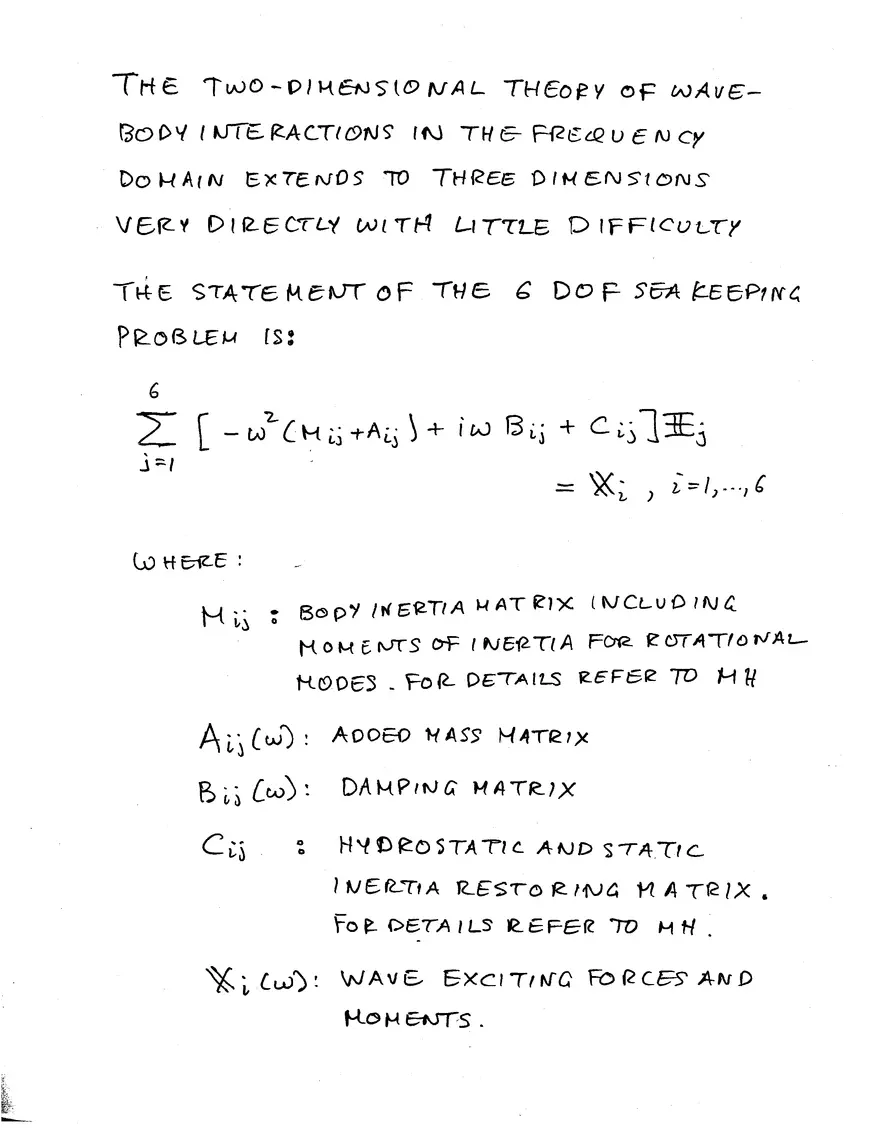 THE TWO-DIMENSIONAL THEORY OF WAVE-
BODY INTERACTIONS IN THE FREQUENCY
DOMAIN EXTENDS TO THREE DIMENSIONS
VERY DIRECTLY WITH LITTLE DIFFICULTY
THE STATEMENT OF THE 6 DOF SEAKEEPING
PROBLEM IS:
6
∑ [ -ω²(Mij + Aij) + iω Bij + Cij ] Ξj
j=1
= 𝕏i , i=1,...,6
WHERE:
Mij : BODY INERTIA MATRIX INCLUDING
MOMENTS OF INERTIA FOR ROTATIONAL
MODES. FOR DETAILS REFER TO MH
Aij(ω): ADDED MASS MATRIX
Bij(ω): DAMPING MATRIX
Cij : HYDROSTATIC AND STATIC
INERTIA RESTORING MATRIX.
FOR DETAILS REFER TO MH.
𝕏i(ω): WAVE EXCITING FORCES AND
MOMENTS.